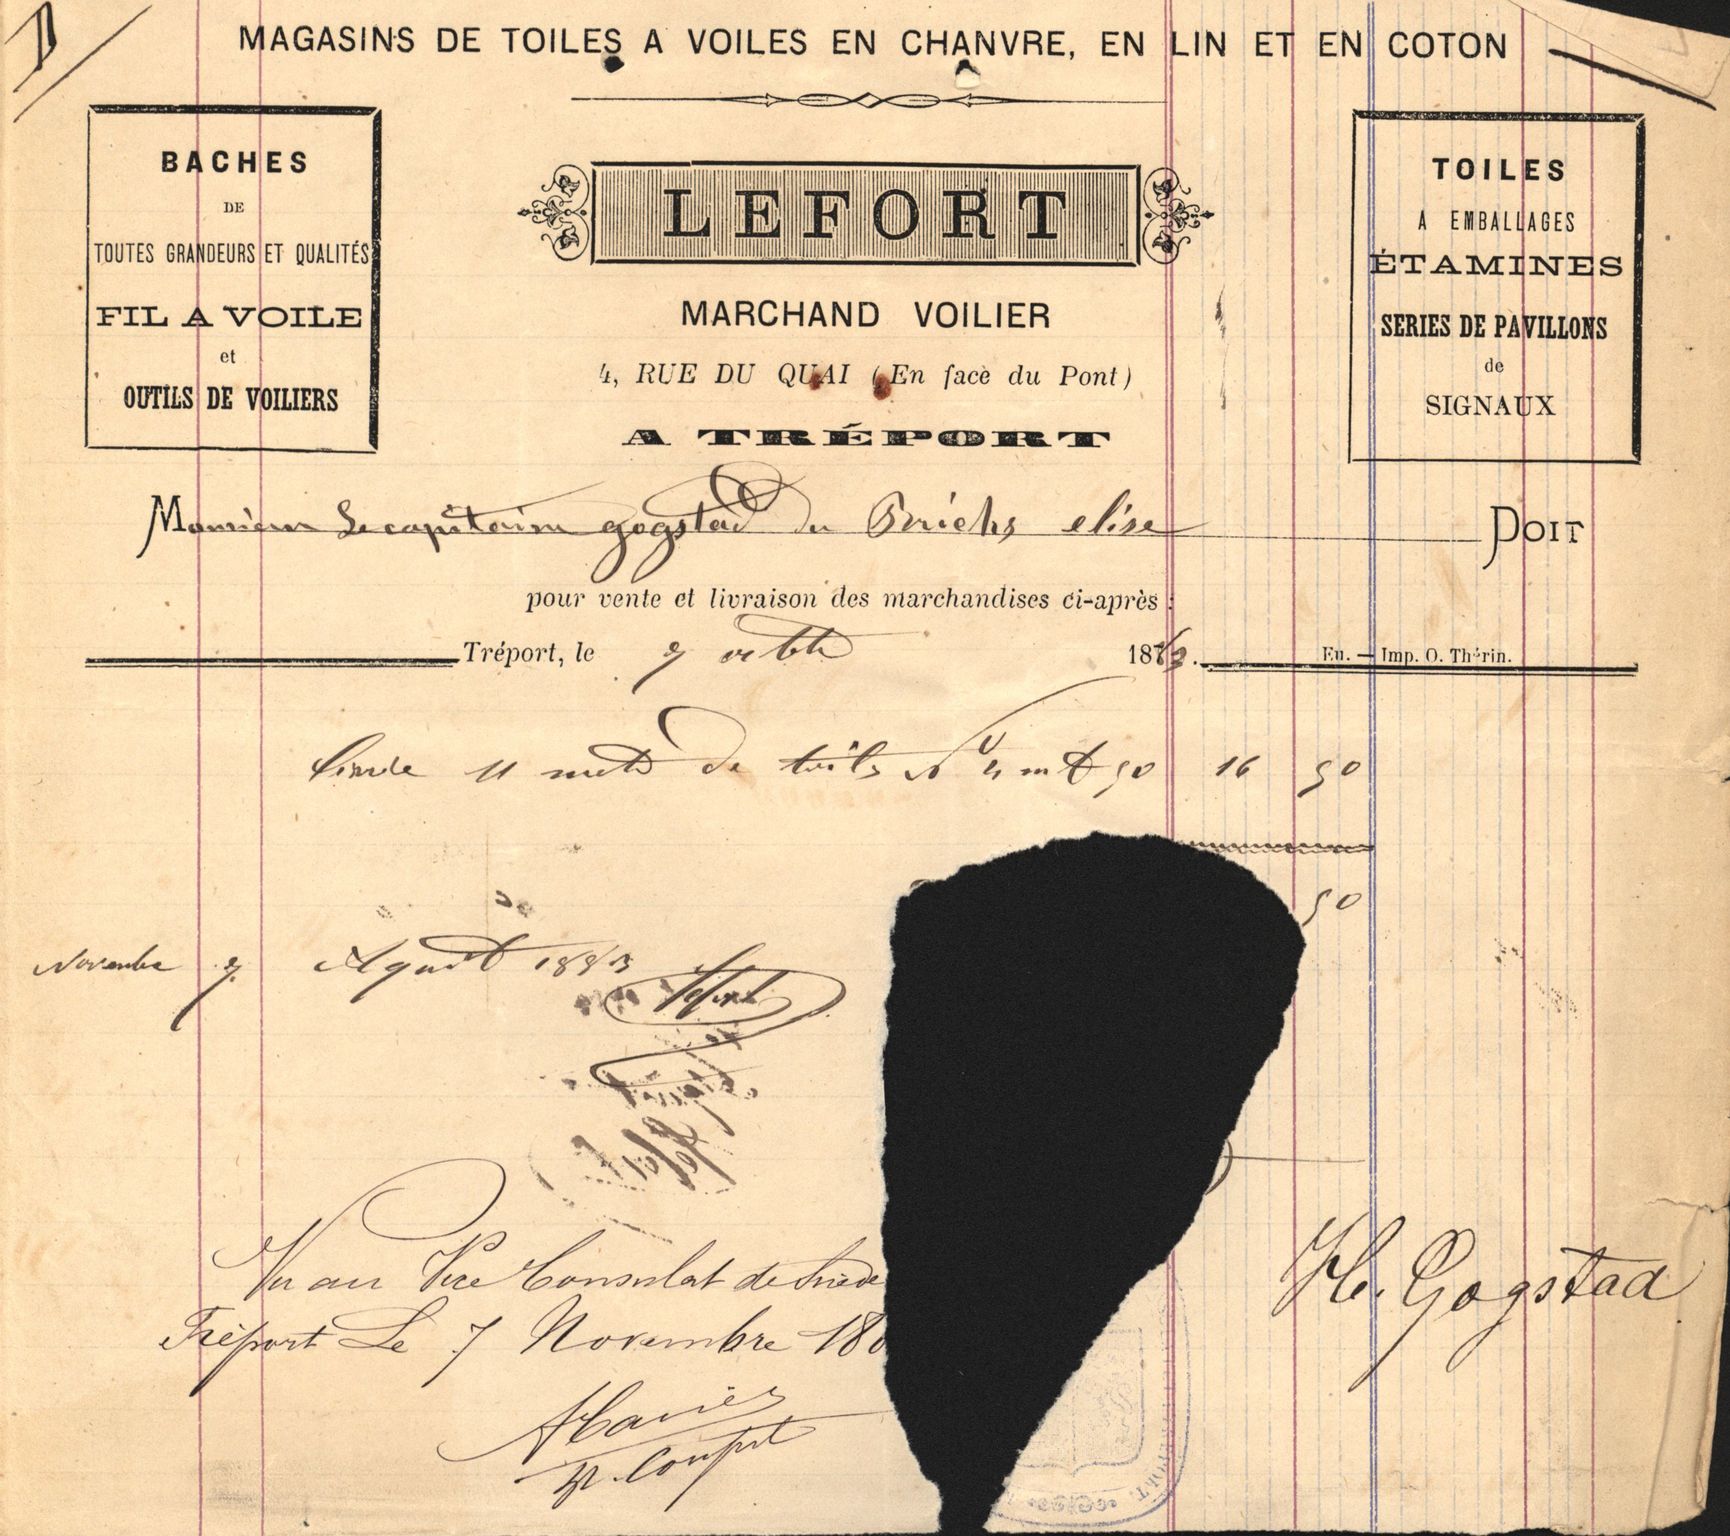 MAGASINS DE TOILES A VOILES EN CHANVRE, EN LIN ET EN COTON
BACHES
DE
TOUTES GRANDEURS ET QUALITÉS
FIL A VOILE
et
OUTILS DE VOILIERS
LEFORT
MARCHAND VOILIER
4, RUE DU QUAI (En face du Pont)
A TRÉPORT
TOILES
A EMBALLAGES
ÉTAMINES
SERIES DE PAVILLONS
de
SIGNAUX
Monsieur Le capitaine gogstad du elise DOIT
pour vente et livraison des marchandises ci-après :
Tréport, le 7 187 Eu. — Imp. O. Thérin.
11 de toile N 4 50 16 50
50
Novembre 7 Aquit 1883
Lefort
Vu au Vice Consulat de Suède
Tréport Le 7 Novembre 188
H. Gogstad